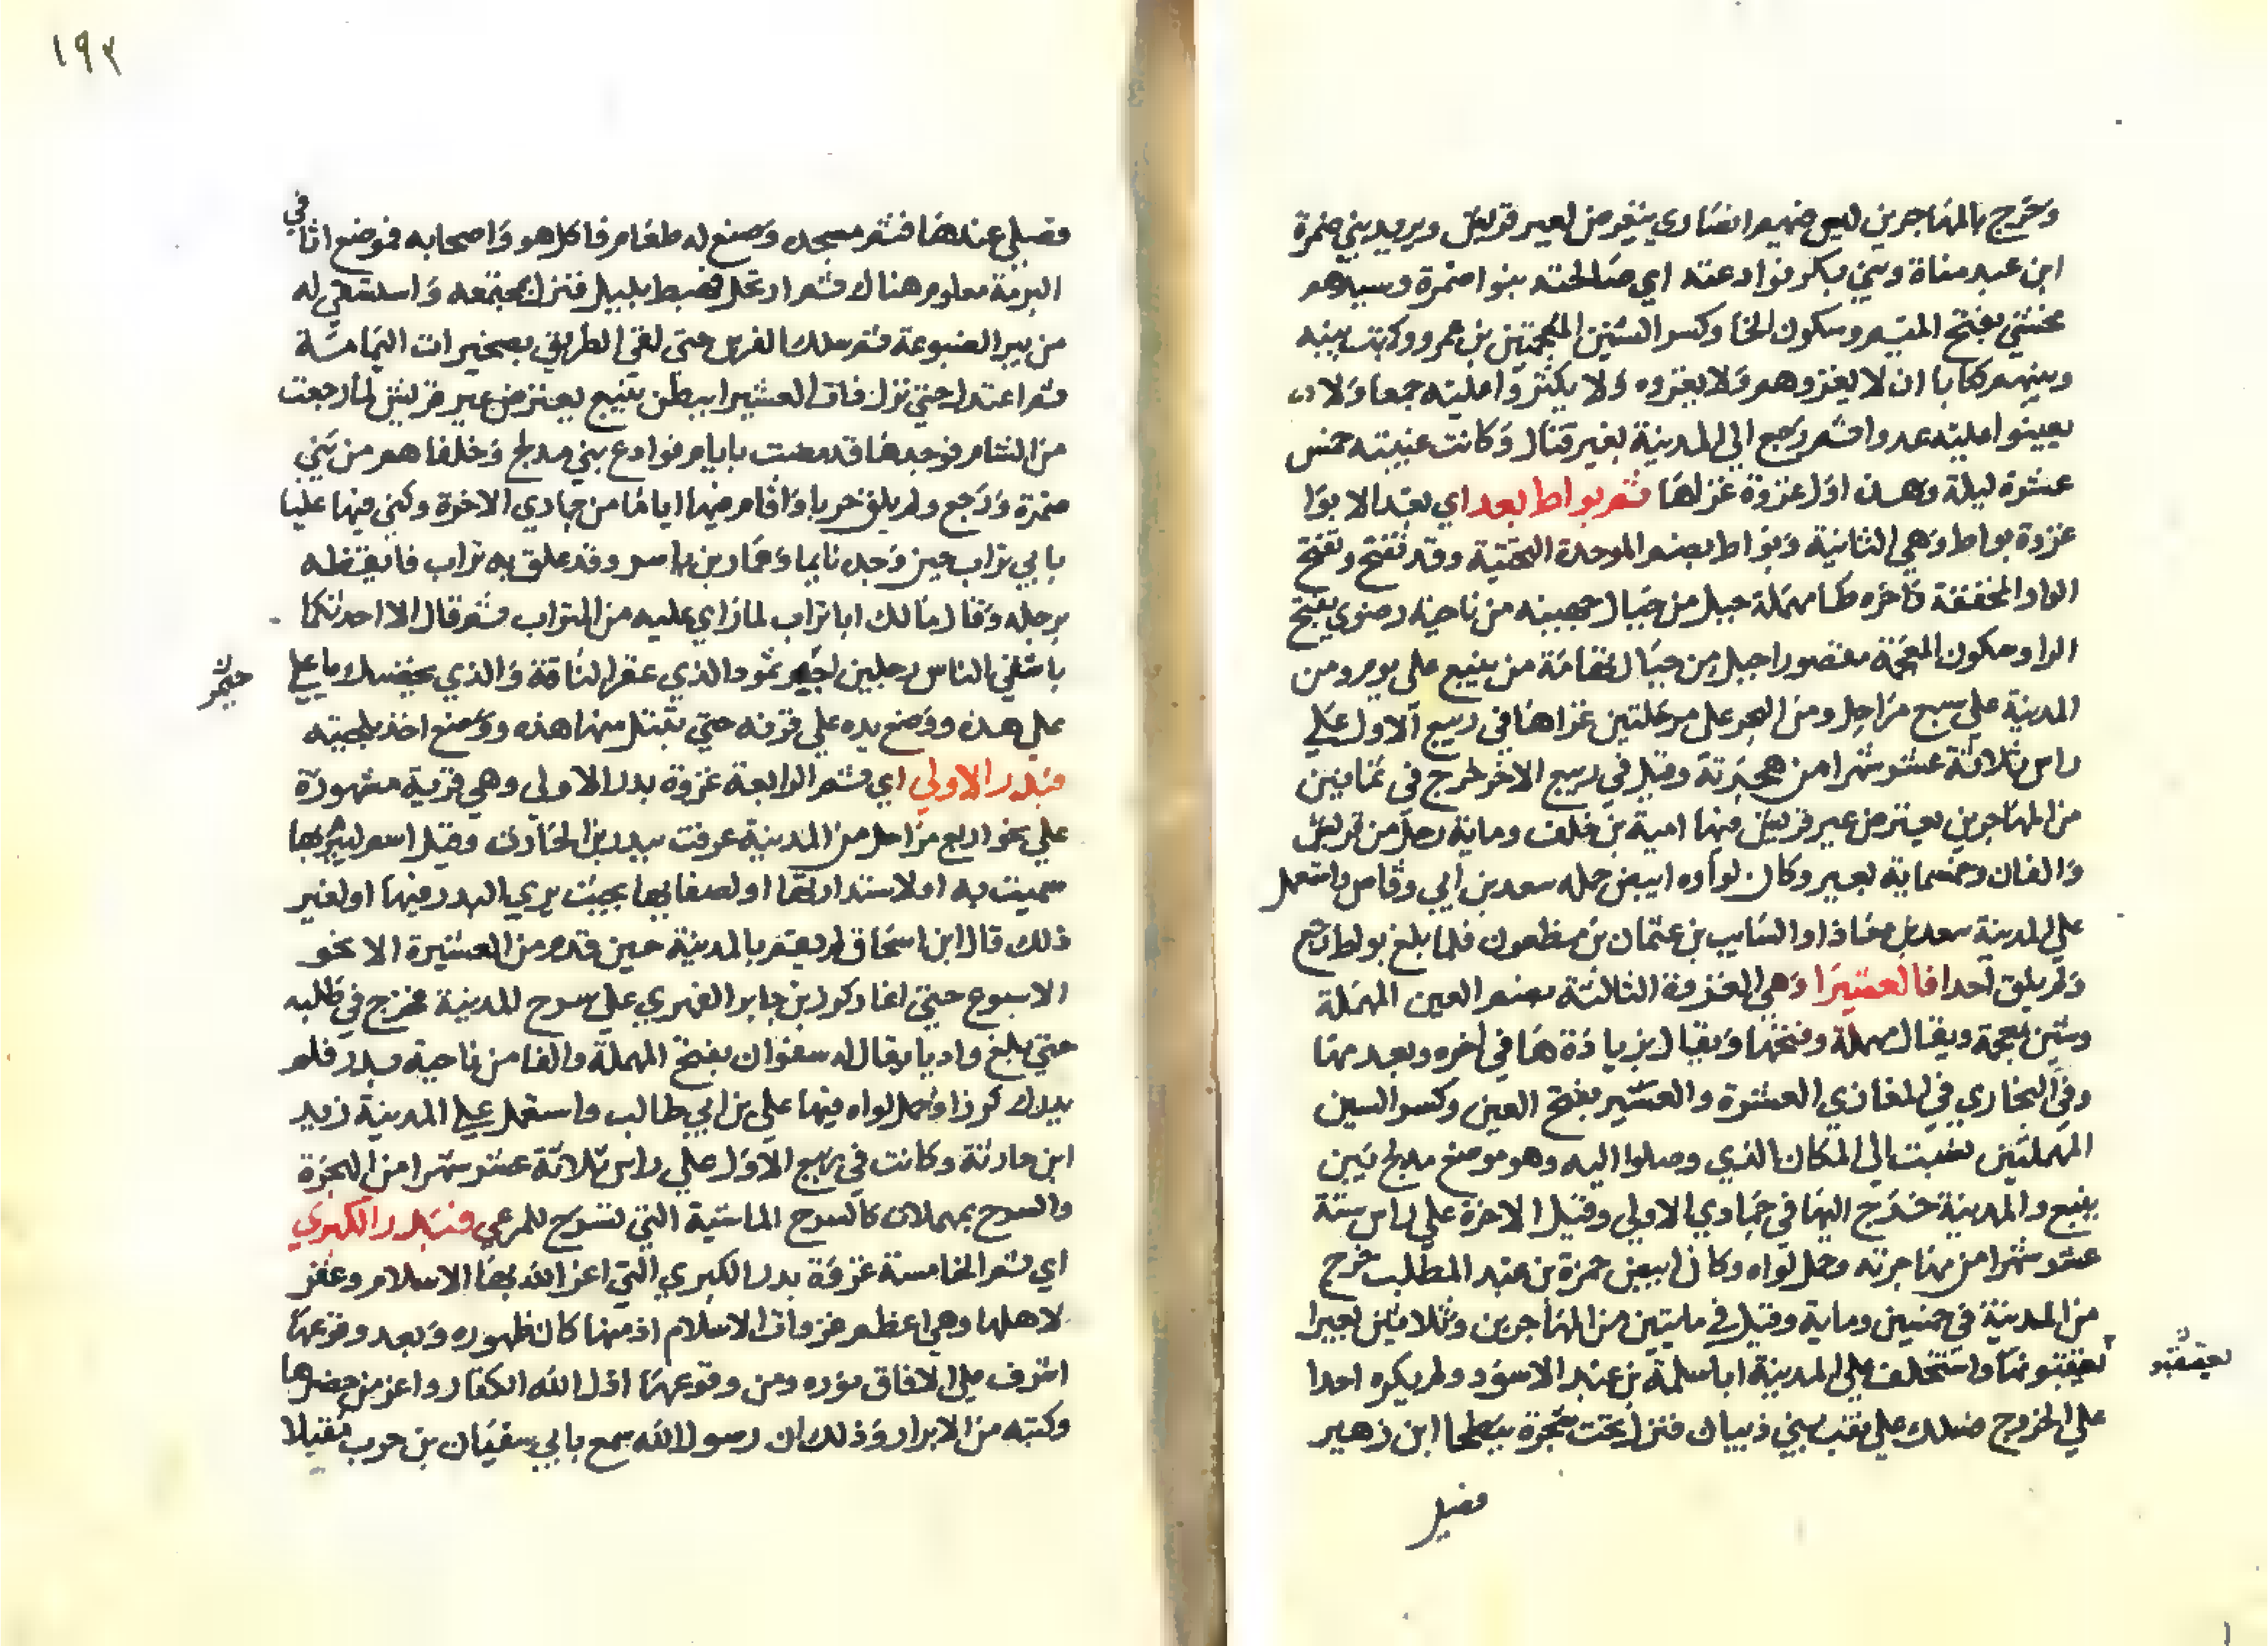 وخرج بالمهاجرين ليس فيهم انصاري يتعرض لعير قريش ويريد بني ضمرة
ابن عبد مناة وبني بكر فوادعته اي صالحته بنوا ضمرة وسيدهم
مخشي بفتح الميم وسكون الخا وكسر الشين المعجمتين بن عمرو وكتبت بينه
وبينهم كتابا ان لا يغزوهم ولا يغزوه ولا يكثروا عليه جمعا ولا
يعينوا عليه عدوا ثم رجع الي المدينة بغير قتال وكانت غيبته خمس
عشرة ليلة وهذه اول غزوة غزاها ثم بواط بعد اي بعد الابوا
غزوة بواط وهي الثانية وبواط بضم الموحدة التحتية وقد تفتح وتفتح
الواو المخففة واخره طا مهملة جبل من جبال جهينه من ناحية رضوي بفتح
الرا وسكون المعجمة مقصورا جبل من جبال تهامة من ينبع علي يوم ومن
المدينة علي سبع مراحل ومن البحر علي مرحلتين غزاها في ربيع الاول علي
راس ثلاثة عشر شهرا من هجرته وقيل في ربيع الاخر خرج في ثمانين
من المهاجرين يعترض عير قريش فيها امية بن خلف وماية رجل من قريش
والفان وخمسماية بعير وكان لواوه ابيض حمله سعد بن ابي وقاص واستعمل
علي المدينة سعد بن معاذ او السايب بن عثمان بن مظعون فلما بلغ بواط رجع
ولم يلق احدا فالعشيرا وهي الغزوة الثالثة بضم العين المهملة
وشين معجمة ويقال مهملة وفتحها ويقال بزيادة ها في اخره وبعد مها
وفي البخاري في المغازي العشرة والعسير بفتح العين وكسر السين
المهملتين نسبت الي المكان الذي وصلوا اليه وهو موضع مدلج بين
ينبع والمدينة خرج اليها في جمادي الاولي وقيل الاخرة علي راس ستة
عشر شهرا من مهاجرته وحمل لواه وكان ابيض حمزة بن عبد المطلب خرج
من المدينة في خمسين وماية وقيل في مايتين من المهاجرين وثلاثين بعيرا
يعتقبونها واستخلف علي المدينة ابا سلمة بن عبد الاسود ولم يكره احدا
علي الخروج فسلك علي نقب بني ذبيان فنزل تحت شجرة ببطحا ابن زهير
يعتقبو
فصلي
١٩٢
فصلي عندها فثم مسجده وصنع له طعام فاكل هو واصحابه فموضع اثافي
البرمة معلوم هناك ثم ارتحل فهبط بليل فنزل بمجتمعه واستسقي له
من بير الضبوعة ثم سلك الفرس حتي لقي الطريق بصخيرات اليمامة
ثم اعتدل حتي نزل فات العشيرا ببطن ينبع يعترض عير قريش لما رجعت
من الشام فوجدها قد مضت بايام فوادع بني مدلج وخلفاهم من بني
ضمرة ورجع ولم يلق حربا واقام فيها اياما من جمادي الاخرة وكني فيها عليا
بابي تراب حين وجده نايما وعمار بن ياسر وقد علق به تراب فايقظه
برجله وقال مالك ابا تراب لما راي عليه من التراب ثم قال الا احدثكما
باشقي الناس رجلين احيمر ثمود الذي عقر الناقة والذي يخضبك يا علي
علي هذه ووضع يده علي قرنه حتي تبتل منها هذه ووضع اخذ بلحيته
فبدر الاولي اي ثم الرابعة غزوة بدر الاولي وهي قرية مشهورة
علي نحو اربع مراحل من المدينة عرفت ببدر بن الحارث وقيل اسم لبيربها
سميت به او لاستدارتها او لصفايها بحيث يري البدر فيها او لغير
ذلك قال ابن اسحاق لم يقم بالمدينة حين قدم من العشيرة الا نحو
الاسبوع حتي اغار كرز بن جابر الفهري علي سرح المدينة فخرج في طلبه
حتي بلغ واديا يقال له سفوان بفتح المهملة والفا من ناحية بدر فلم
يدرك كرزا وحمل لواه فيها علي بن ابي طالب واستعمل علي المدينة زيد
ابن حارثة وكانت في ربيع الاول علي راس ثلاثة عشر شهرا من الهجرة
والسرح بمهملات كالسرح الماشية التي تسرح للمرعي فبدر الكبري
اي ثم الخامسة غزوة بدر الكبري التي اعز الله بها الاسلام وغفر
لاهلها وهي اعظم غزوات الاسلام اذ منها كان ظهوره وبعد وقوعها
اشرف علي الافاق نوره ومن وقوعها اذل الله الكفار واعز من حضرها
وكتبه من الابرار وذلك ان رسول الله سمع بابي سفيان بن حرب مقبلا